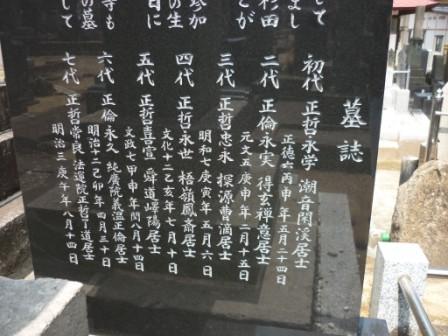 墓誌
初代 正哲永学 潮音閑渓居士
正徳六丙申年五月二十四日
二代 正倫永実 得玄禅意居士
元文五庚申年二月十五日
三代 正哲忠永 探源曹滴居士
明和七庚寅年五月六日
四代 正哲永世 梧嶺鳳斎居士
文化十二乙亥年七月十日
五代 正哲喜宣 舜道嶂陽居士
文政七甲申年閏八月十四日
六代 正倫永久 純広院義温正倫居士
明治十二己卯年四月三十日
七代 正哲常良 法運院正哲一道居士
明治三庚午年八月十四日